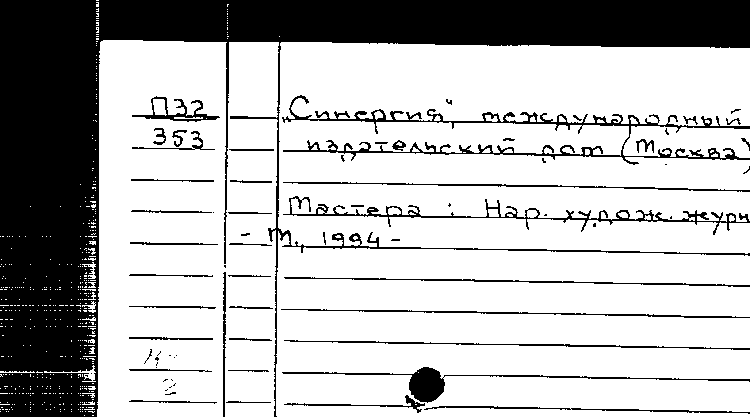 П32 „Синергия", международный
353 издательский дом (Москва)
Мастера : Нар. худож. журн
- М., 1994 -